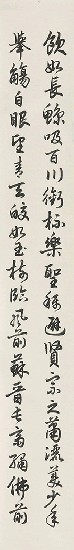 飲如長鯨吸百川銜杯樂聖稱避賢宗之蕭洒美少年
舉觴白眼望青天皎如玉樹臨風前蘇晉長齋繡佛前